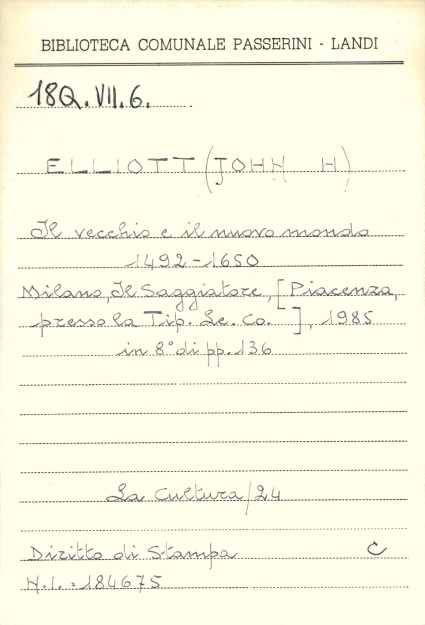 BIBLIOTECA COMUNALE PASSERINI - LANDI
18Q.VII.6.
ELLIOTT (JOHN H)
Il vecchio e il nuovo mondo
1492-1650
Milano, Il Saggiatore, [Piacenza,
presso la Tip. Le. Co. ], 1985
in 8° di pp. 136
La Cultura/24
Diritto di Stampa C
N.I.: 184675